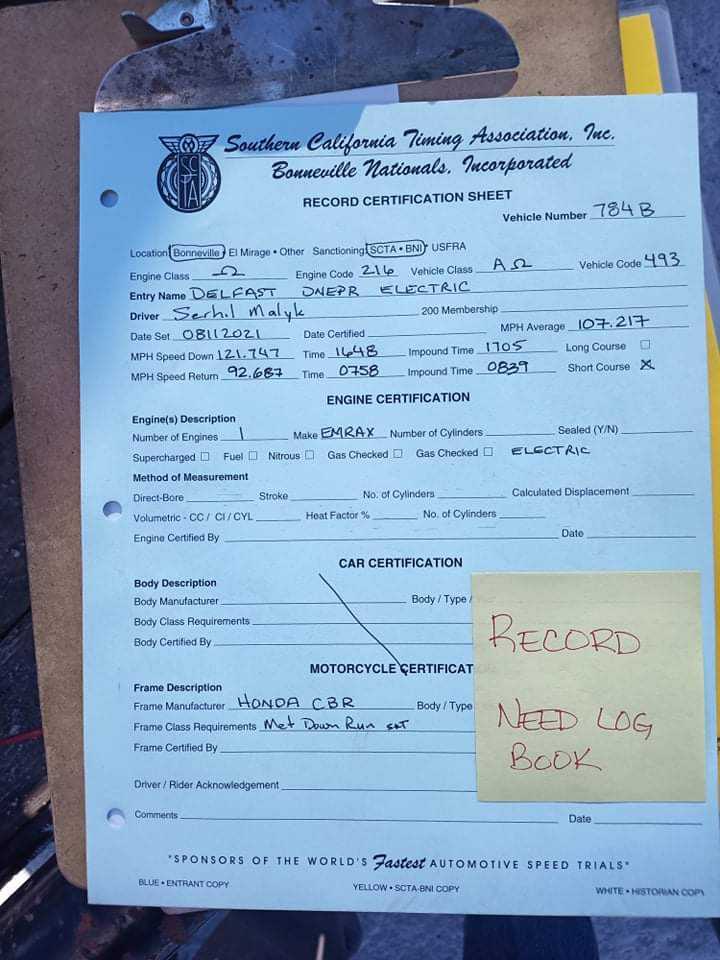 Southern California Timing Association, Inc.
Bonneville Nationals, Incorporated
SCTA
RECORD CERTIFICATION SHEET
Vehicle Number 784 B
Location Bonneville • El Mirage • Other Sanctioning SCTA • BNI • USFRA
Engine Class Ω Engine Code 216 Vehicle Class A Ω Vehicle Code 493
Entry Name DELFAST DNEPR ELECTRIC
Driver Serhil Malyk 200 Membership
Date Set 08112021 Date Certified MPH Average 107.217
MPH Speed Down 121.747 Time 1648 Impound Time 1705 Long Course ☐
MPH Speed Return 92.687 Time 0758 Impound Time 0839 Short Course ☒
ENGINE CERTIFICATION
Engine(s) Description
Number of Engines 1 Make EMRAX Number of Cylinders Sealed (Y/N)
Supercharged ☐ Fuel ☐ Nitrous ☐ Gas Checked ☐ Gas Checked ☐ ELECTRIC
Method of Measurement
Direct-Bore Stroke No. of Cylinders Calculated Displacement
Volumetric - CC / CI / CYL Heat Factor % No. of Cylinders
Engine Certified By Date
CAR CERTIFICATION
Body Description
Body Manufacturer Body / Type /
Body Class Requirements
Body Certified By
MOTORCYCLE CERTIFICAT
Frame Description
Frame Manufacturer HONDA CBR Body / Type
Frame Class Requirements Met Down Run
Frame Certified By
Driver / Rider Acknowledgement
Comments Date
RECORD
NEED LOG
BOOK
"SPONSORS OF THE WORLD'S Fastest AUTOMOTIVE SPEED TRIALS"
BLUE • ENTRANT COPY YELLOW • SCTA-BNI COPY WHITE • HISTORIAN COPY